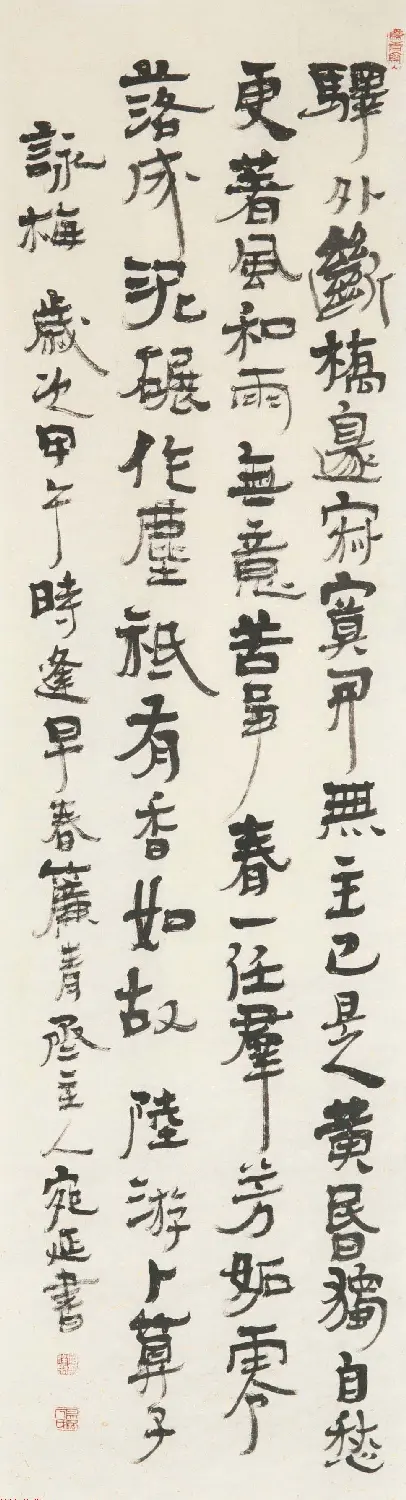 驛外斷橋邊寂寞開無主已是黃昏獨自愁
更著風和雨無意苦爭春一任羣芳妬零
落成泥碾作塵祗有香如故 陸游卜算子
詠梅 歲次甲午時逢早春簾青主人宛延書